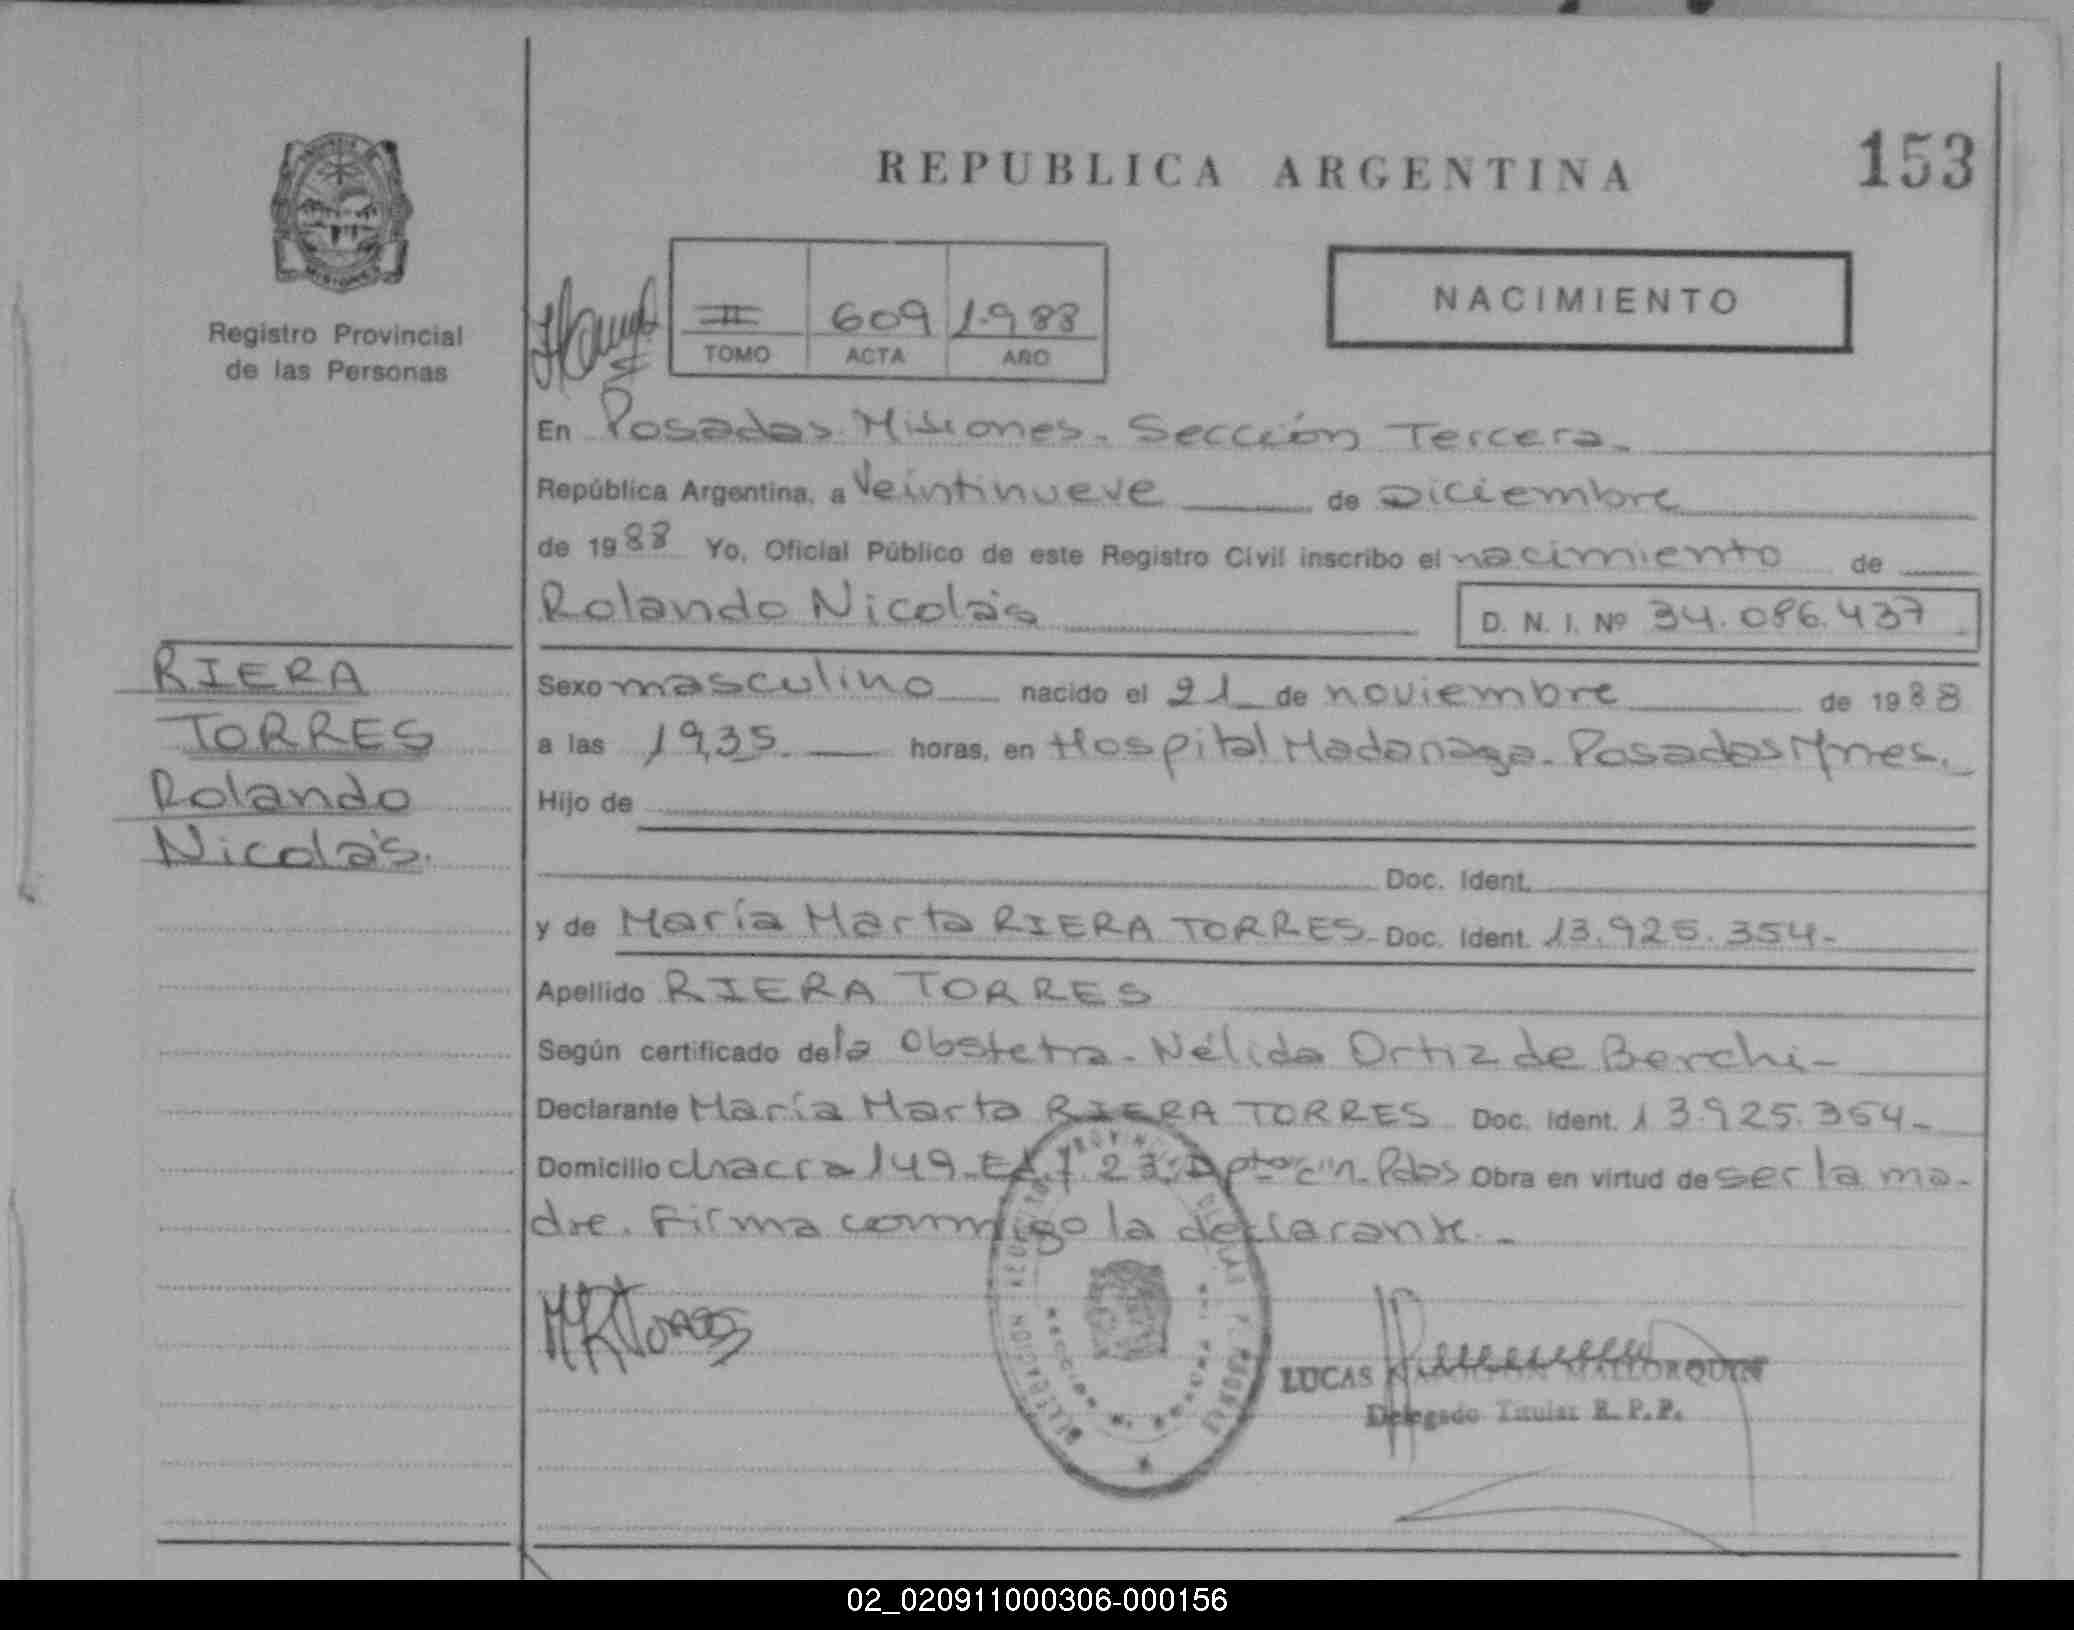 REPUBLICA ARGENTINA
153
Registro Provincial
de las Personas
II 609 1.988
TOMO ACTA AÑO
NACIMIENTO
En Posadas Misiones. Sección Tercera.
República Argentina, a Veintinueve de Diciembre
de 1988 Yo, Oficial Público de este Registro Civil inscribo el nacimiento de
Rolando Nicolás
D. N. I. Nº 34.086.437
RIERA
TORRES
Rolando
Nicolás.
Sexo masculino nacido el 21 de noviembre de 1988
a las 19,35 horas, en Hospital Madariaga. Posadas Mnes.
Hijo de
Doc. Ident.
y de María Marta RIERA TORRES. Doc. Ident. 13.925.354-
Apellido RIERA TORRES
Según certificado de la Obstetra. Nélida Ortiz de Berchi-
Declarante María Marta RIERA TORRES Doc. Ident. 13.925.354-
Domicilio chacra 149. 23. Dpto "C". Pdas Obra en virtud de ser la ma-
dre. Firma conmigo la declarante.-
MRTorres
LUCAS MALLORQUIN
Delegado Titular R. P. P.
02_020911000306-000156